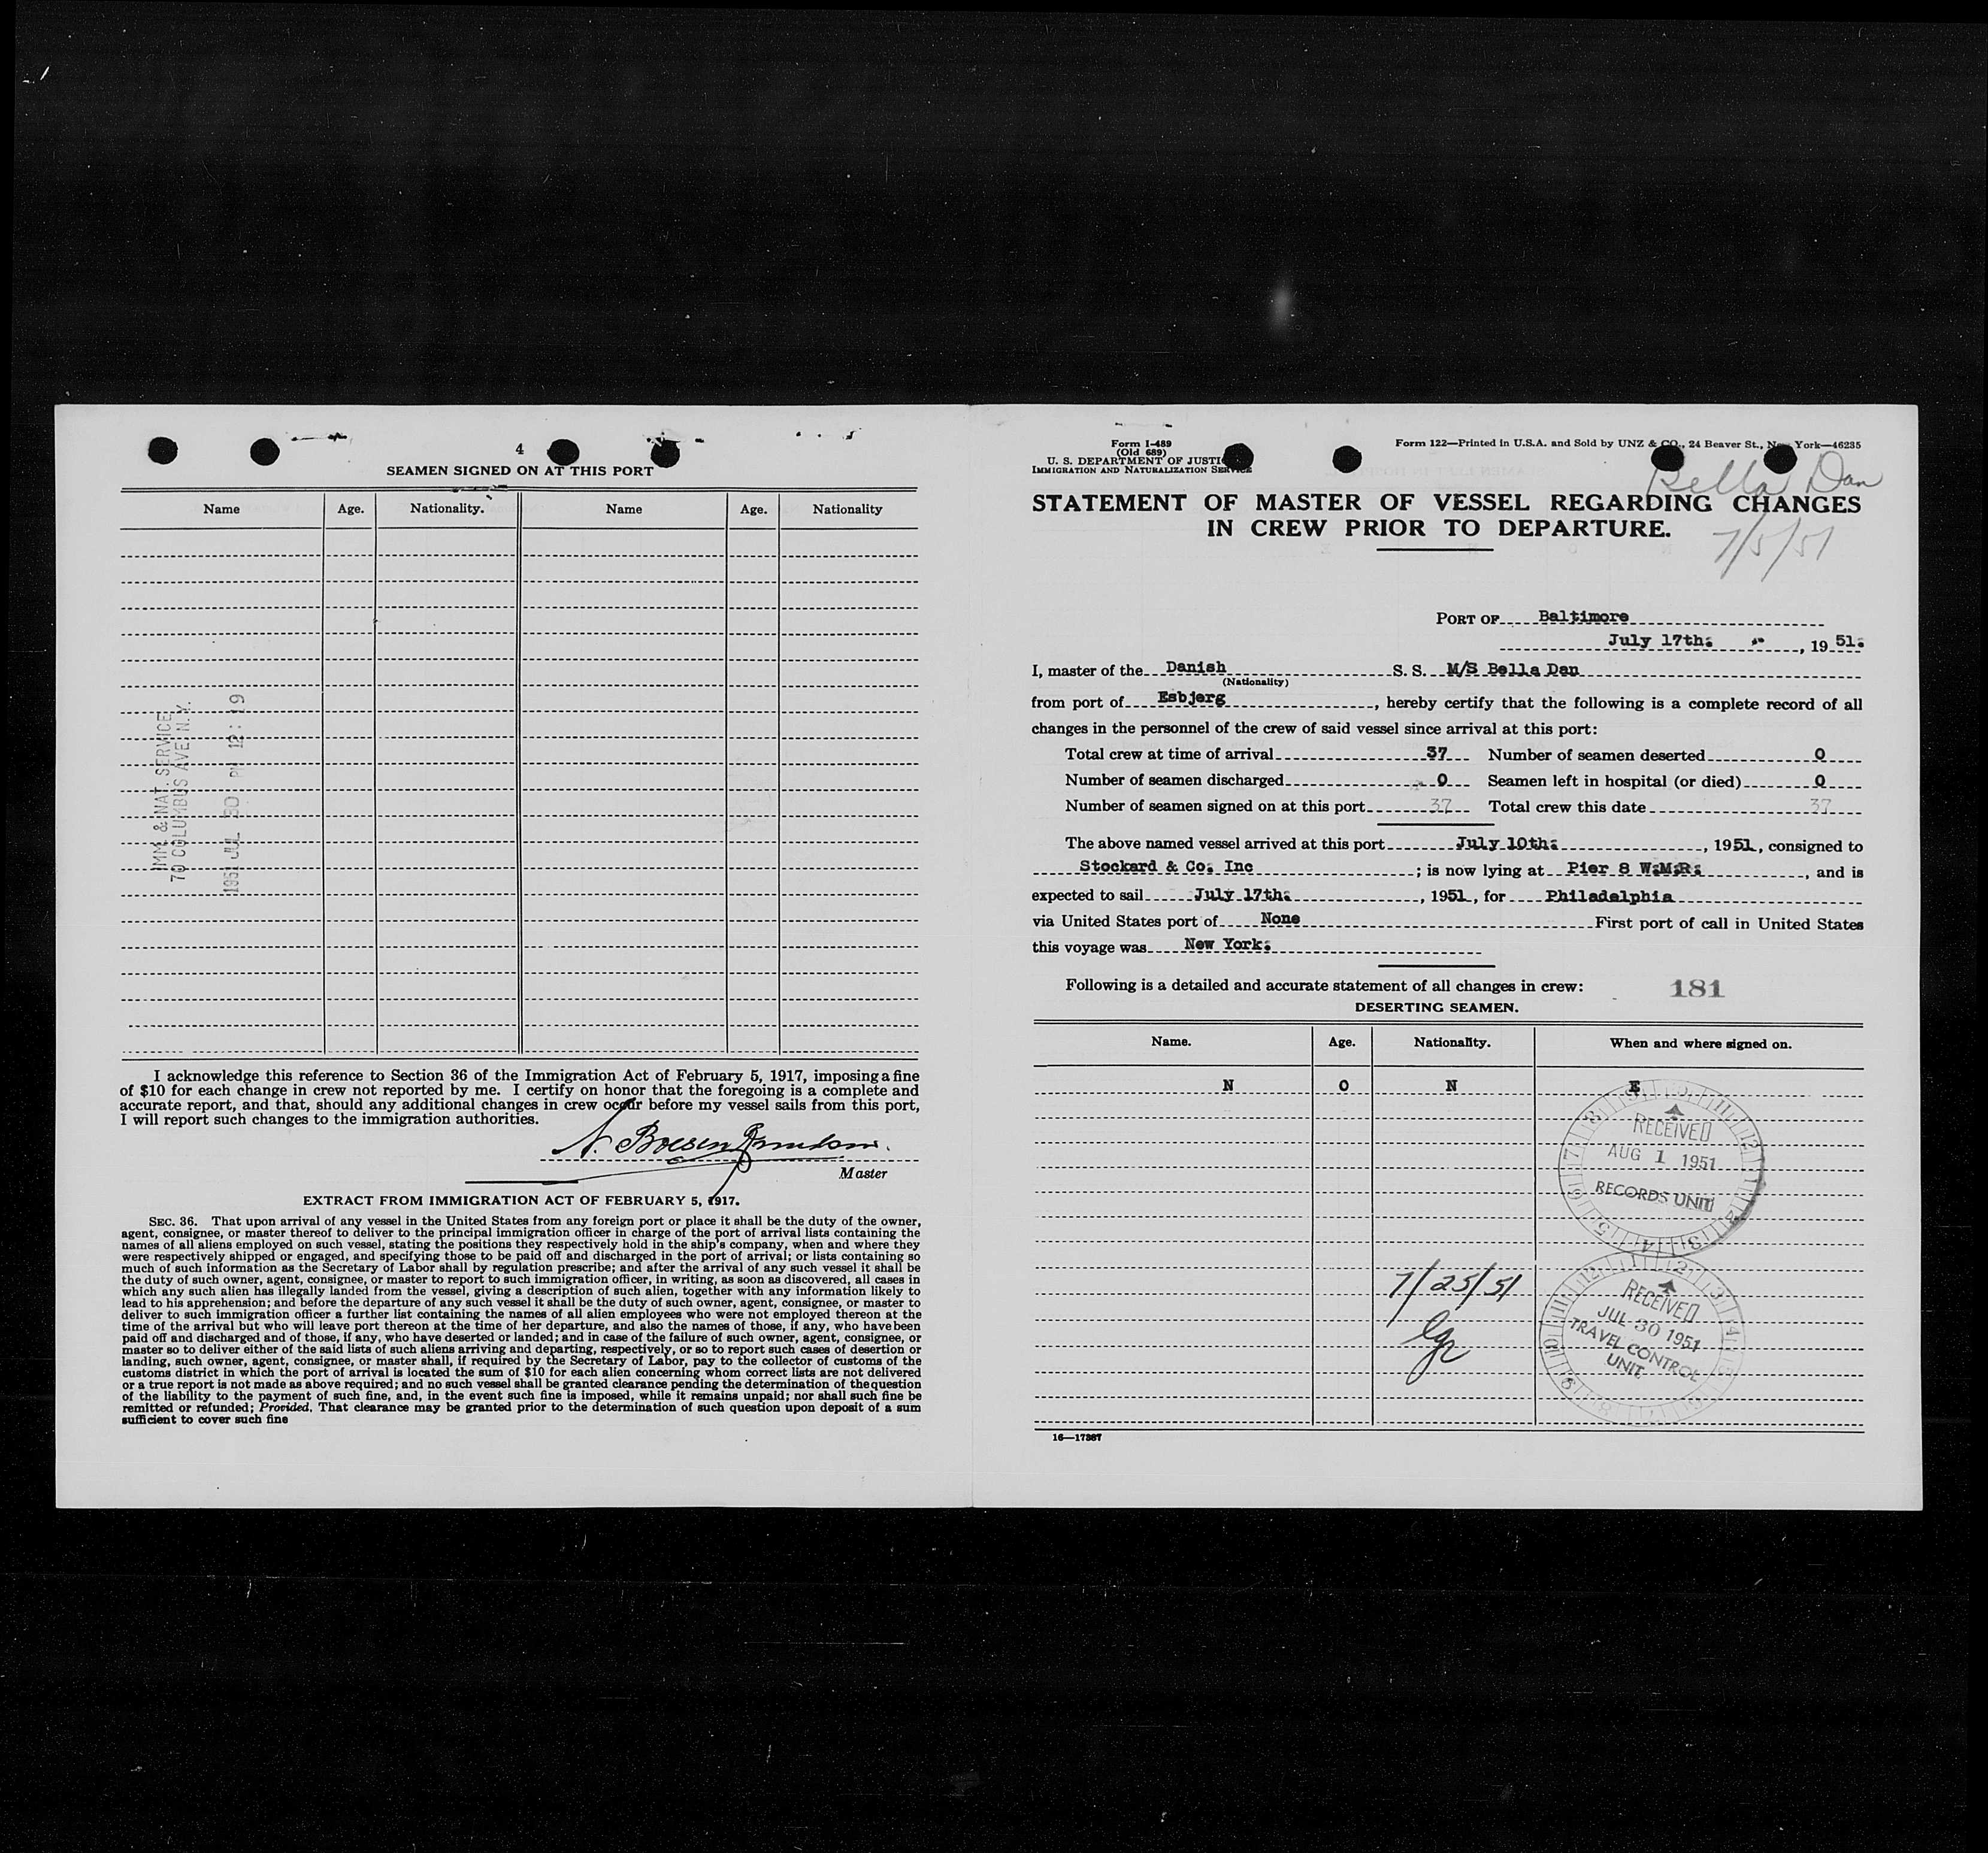 4
SEAMEN SIGNED ON AT THIS PORT
Name Age. Nationality. Name Age. Nationality
IMM. & NAT. SERVICE
70 COLUMBUS AVE. N.Y.
1951 JUL 30 PM 12:19
I acknowledge this reference to Section 36 of the Immigration Act of February 5, 1917, imposing a fine
of $10 for each change in crew not reported by me. I certify on honor that the foregoing is a complete and
accurate report, and that, should any additional changes in crew occur before my vessel sails from this port,
I will report such changes to the immigration authorities.
N. Boesen
Master
EXTRACT FROM IMMIGRATION ACT OF FEBRUARY 5, 1917.
SEC. 36. That upon arrival of any vessel in the United States from any foreign port or place it shall be the duty of the owner,
agent, consignee, or master thereof to deliver to the principal immigration officer in charge of the port of arrival lists containing the
names of all aliens employed on such vessel, stating the positions they respectively hold in the ship's company, when and where they
were respectively shipped or engaged, and specifying those to be paid off and discharged in the port of arrival; or lists containing so
much of such information as the Secretary of Labor shall by regulation prescribe; and after the arrival of any such vessel it shall be
the duty of such owner, agent, consignee, or master to report to such immigration officer, in writing, as soon as discovered, all cases in
which any such alien has illegally landed from the vessel, giving a description of such alien, together with any information likely to
lead to his apprehension; and before the departure of any such vessel it shall be the duty of such owner, agent, consignee, or master to
deliver to such immigration officer a further list containing the names of all alien employees who were not employed thereon at the
time of the arrival but who will leave port thereon at the time of her departure, and also the names of those, if any, who have been
paid off and discharged and of those, if any, who have deserted or landed; and in case of the failure of such owner, agent, consignee, or
master so to deliver either of the said lists of such aliens arriving and departing, respectively, or so to report such cases of desertion or
landing, such owner, agent, consignee, or master shall, if required by the Secretary of Labor, pay to the collector of customs of the
customs district in which the port of arrival is located the sum of $10 for each alien concerning whom correct lists are not delivered
or a true report is not made as above required; and no such vessel shall be granted clearance pending the determination of the question
of the liability to the payment of such fine, and, in the event such fine is imposed, while it remains unpaid; nor shall such fine be
remitted or refunded; Provided, That clearance may be granted prior to the determination of such question upon deposit of a sum
sufficient to cover such fine
Form I-489
(Old 689)
U. S. DEPARTMENT OF JUSTICE
IMMIGRATION AND NATURALIZATION SERVICE
Form 122—Printed in U.S.A. and Sold by UNZ & CO., 24 Beaver St., New York—46235
Bella Dan
STATEMENT OF MASTER OF VESSEL REGARDING CHANGES
IN CREW PRIOR TO DEPARTURE.
7/5/51
PORT OF Baltimore
July 17th. , 19 51.
I, master of the Danish S. S. M/S Bella Dan
(Nationality)
from port of Esbjerg , hereby certify that the following is a complete record of all
changes in the personnel of the crew of said vessel since arrival at this port:
Total crew at time of arrival 37 Number of seamen deserted 0
Number of seamen discharged 0 Seamen left in hospital (or died) 0
Number of seamen signed on at this port 37 Total crew this date 37
The above named vessel arrived at this port July 10th. , 1951, consigned to
Stockard & Co. Inc ; is now lying at Pier 8 W.M.R. , and is
expected to sail July 17th. , 1951, for Philadelphia
via United States port of None First port of call in United States
this voyage was New York.
Following is a detailed and accurate statement of all changes in crew: 181
DESERTING SEAMEN.
Name. Age. Nationality. When and where signed on.
N O N E
RECEIVED
AUG 1 1951
RECORDS UNIT
7/25/51
RECEIVED
JUL 30 1951
TRAVEL CONTROL
UNIT
16—17387